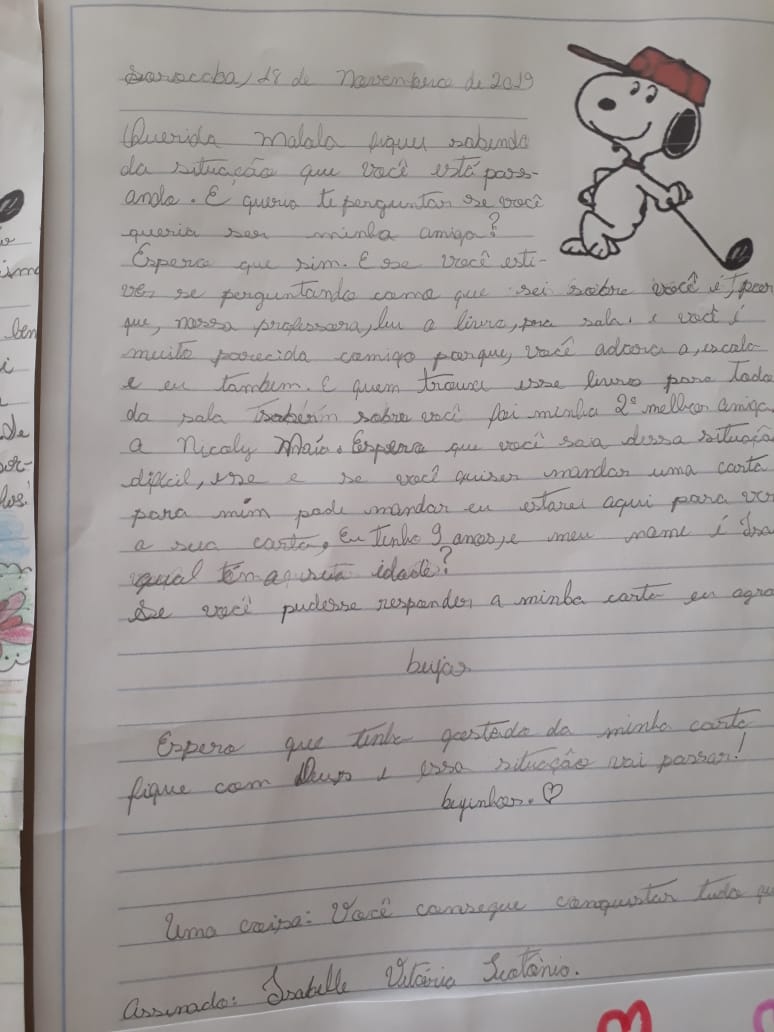 Sorocoba, 18 de Novembero de 2019
Querida Malala fiquei sabendo
da situação que você está pass-
ando. E queria te perguntar se você
queria ser minha amiga?
Espero que sim. E se você esti-
ver se perguntando como que sei sobre você é, por
que, nossa professora, leu o livro, pra sala. e você é
muito parecida comigo porque, você adora a, escola
e eu também. E quem trouxe esse livro para toda
da sala saberem sobre você foi minha 2ª melhor amiga,
a Nicoly Maia. Espero que você saia dessa situação
difícil, e se você quiser mandar uma carta
para mim pode mandar eu estarei aqui para ver
a sua carta. Eu tenho 9 anos, e meu nome é Isa
qual tem a sua idade?
Se você pudesse responder, a minha carta eu agra
beijos
Espero que tenha gostado da minha carta
fique com Deus e essa situação vai passar!
beijinhos. ♡
Uma coisa: Você consegue conquistar tudo qu
Assinado: Isabelle Vitória
ben
i
De